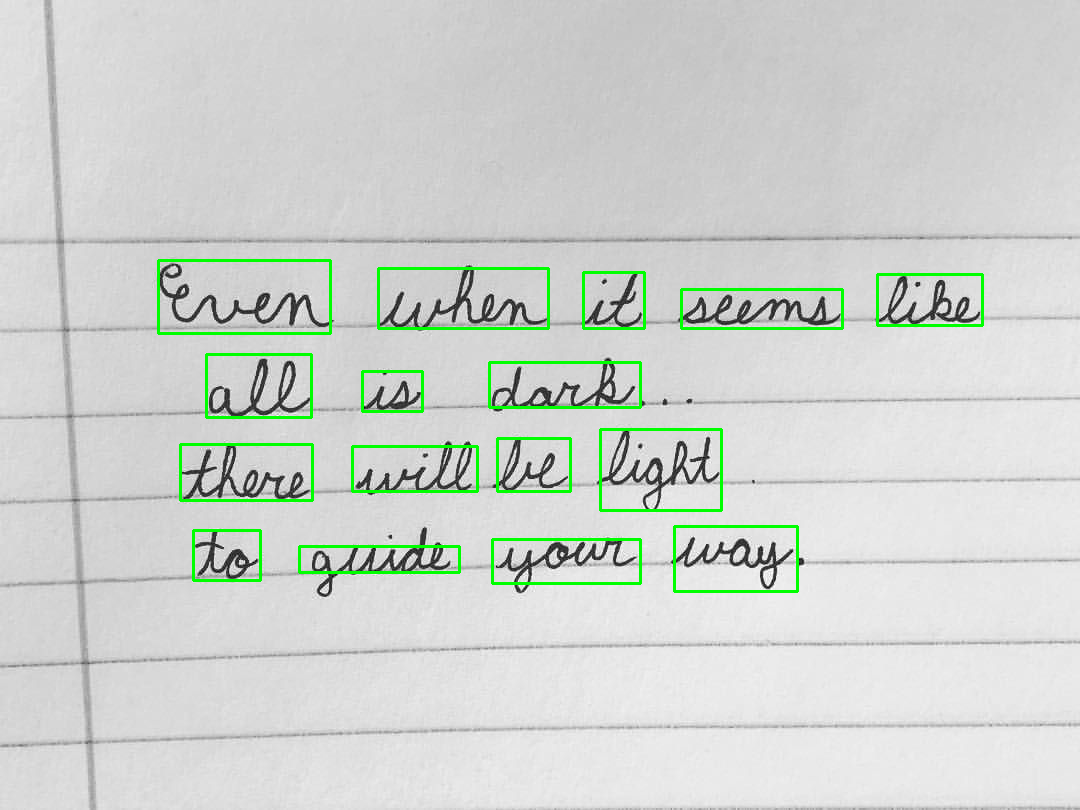 Even when it seems like
all is dark...
there will be light
to guide your way.